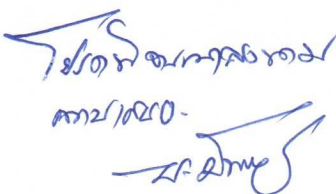 โปรดพิจารณาลงนาม
ตามเสนอ.